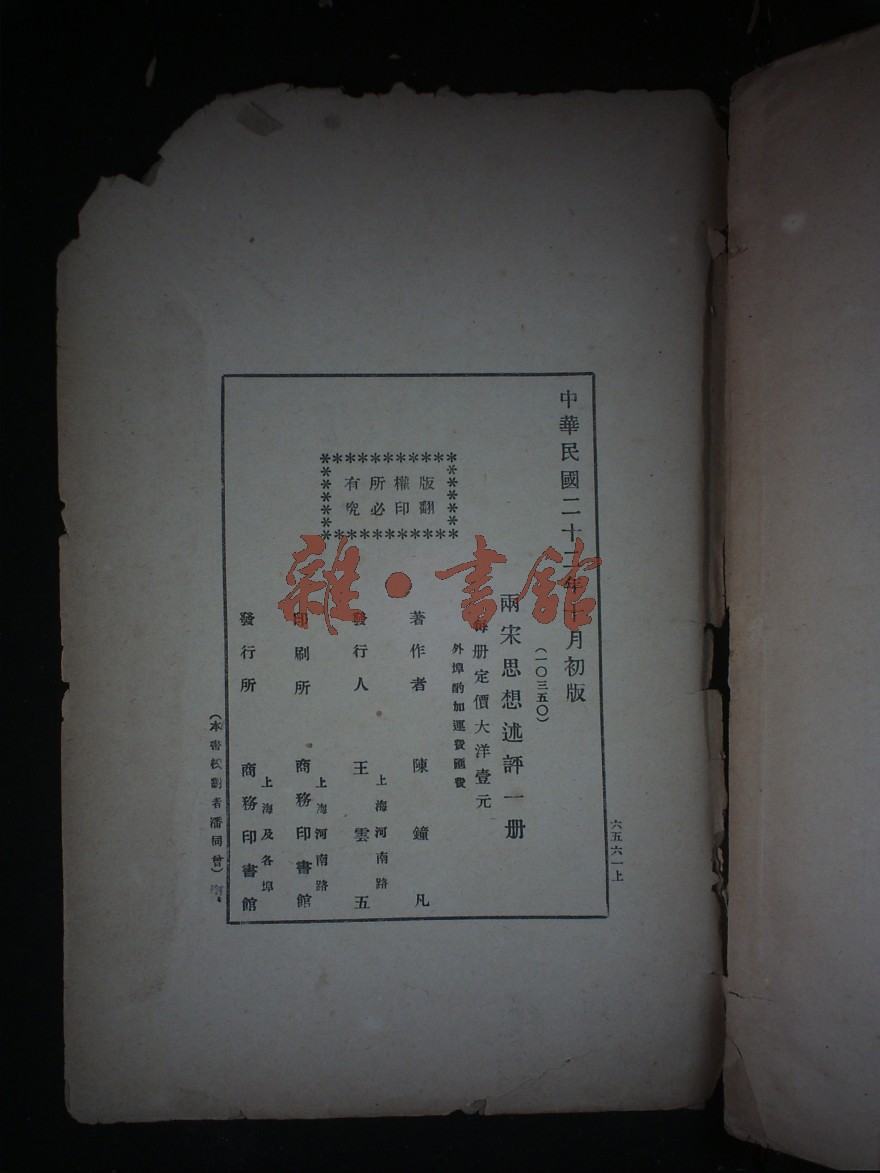 中華民國二十二年十月初版
六五六一上
(一〇三五〇)
兩宋思想述評一册
每册定價大洋壹元
外埠酌加運費匯費
版權所有
翻印必究
著作者 陳鐘凡
上海河南路
發行人 王雲五
上海河南路
印刷所 商務印書館
上海及各埠
發行所 商務印書館
(本書校對者潘同曾)
雜·書館